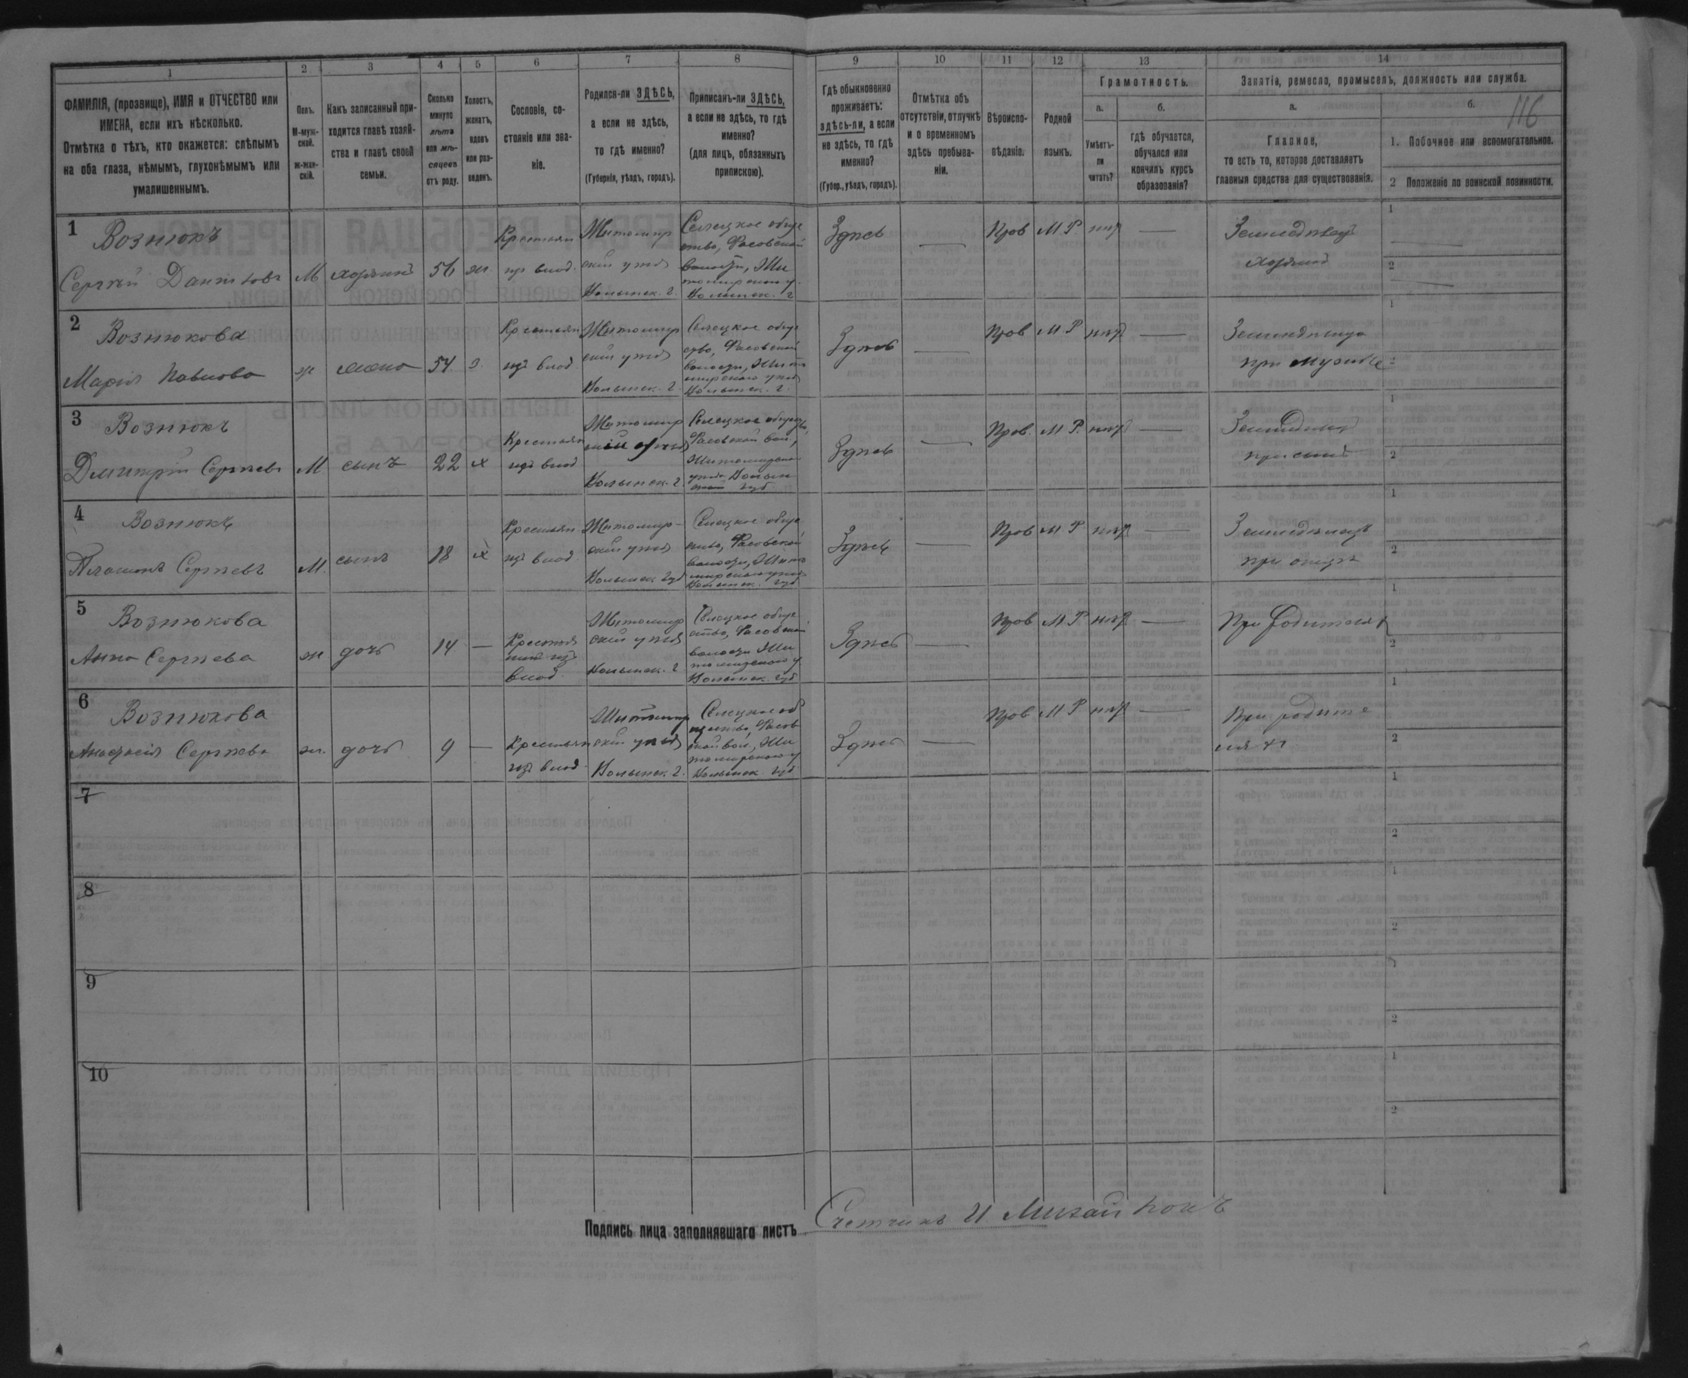 116
1 2 3 4 5 6 7 8 9 10 11 12 13 14
ФАМИЛІЯ, (прозвище), ИМЯ и ОТЧЕСТВО или ИМЕНА, если ихъ нѣсколько.
Отмѣтка о тѣхъ, кто окажется: слѣпымъ на оба глаза, нѣмымъ, глухонѣмымъ или умалишеннымъ.
Полъ.
М-мужской.
ж-женскій.
Какъ записанный приходится главѣ хозяйства и главѣ своей семьи.
Сколько минуло лѣтъ или мѣсяцевъ отъ роду.
Холостъ, женатъ, вдовъ или разведенъ.
Сословіе, состояніе или званіе.
Родился-ли ЗДѢСЬ, а если не здѣсь, то гдѣ именно?
(Губернія, уѣздъ, городъ).
Приписанъ-ли ЗДѢСЬ, а если не здѣсь, то гдѣ именно?
(для лицъ, обязанныхъ припискою).
Гдѣ обыкновенно проживаетъ: здѣсь-ли, а если не здѣсь, то гдѣ именно?
(Губер., уѣздъ, городъ).
Отмѣтка объ отсутствіи, отлучкѣ и о временномъ здѣсь пребываніи.
Вѣроисповѣданіе.
Родной языкъ.
Грамотность.
а.
Умѣетъ-ли читать?
б.
гдѣ обучается, обучался или кончилъ курсъ образованія?
Занятія, ремесло, промыселъ, должность или служба.
а.
Главное,
то есть то, которое доставляетъ главныя средства для существованія.
б.
1. Побочное или вспомогательное.
2 Положеніе по воинской повинности.
1 Вознюкъ
Сергѣй Даниловъ М хозяинъ 56 ж. Крестьян. изъ влад. Житомирскій уѣздъ Волынск. г. Селецкое общество, Фасовской волости, Житомирского у. Волынск. г. Здѣсь — Прав М Р нѣт — Земледѣлецъ хозяинъ
2 Вознюкова
Марія Павлова ж жена 54 з Крестьян изъ влад Житомирскій уѣздъ Волынск. г. Селецкое общество, Фасовской волости, Житомирского уѣзд Волынск. г. Здѣсь — Прав М Р нѣт — Земледѣлецъ при мужѣ
3 Вознюкъ
Дмитрій Сергѣевъ М сынъ 22 х Крестьян изъ влад Житомирскій уѣздъ Волынск. г. Селецкое общество, Фасовской вол, Житомирского уѣзд. Волынской губ Здѣсь — Прав. М Р. нѣт —
4 Вознюкъ
Платонъ Сергѣевъ М. сынъ 18 х Крестьян изъ влад Житомирскій уѣздъ Волынск губ Селецкое общество, Фасовской волости, Житомирского уѣзд. Волынск. губ Здѣсь — Прав М Р нѣт — Земледѣлецъ при отцѣ
5 Вознюкова
Анна Сергѣева ж дочь 14 — Крестьян изъ влад Житомирскій уѣздъ Волынск. г Селецкое общество, Фасовской волости Житомирского у Волынск губ Здѣсь — Прав М Р нѣт — При родителях
6 Вознюкова
Анастасія Сергѣева ж. дочь 9 — Крестьян изъ влад Житомирскій уѣздъ Волынск. г. Селецкое общество, Фасовской вол, Житомирского у Волынск губ Здѣсь — Прав М Р нѣт — При родителях
7
8
9
10
Подпись лица заполнявшаго листъ Счетчикъ